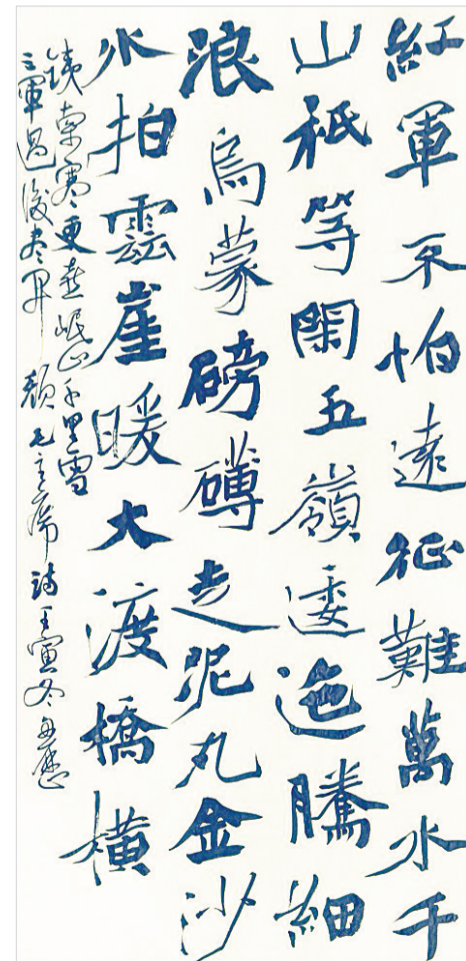 紅軍不怕遠征難萬水千
山秖等閑五嶺逶迤騰細
浪烏蒙磅礴走泥丸金沙
水拍雲崖暖大渡橋橫
鐵索寒更喜岷山千里雪
三軍過後盡開顏毛主席詩王寅冬